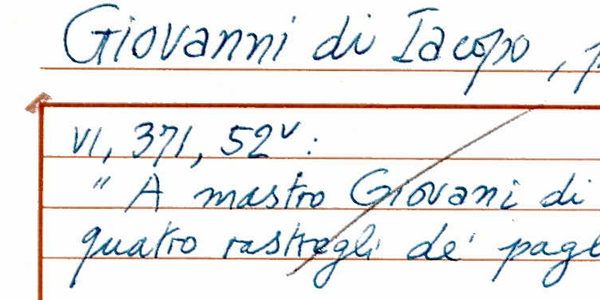 Giovanni di Iacopo,
VI, 371, 52v:
"A mastro Giovani di
quatro rastregli de'